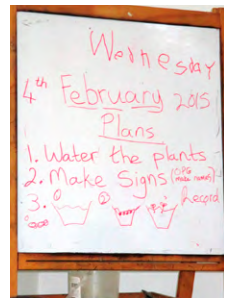 Wednesday
4th February 2015
Plans
1. Water the plants
2. Make Signs (
3. ① ② Record